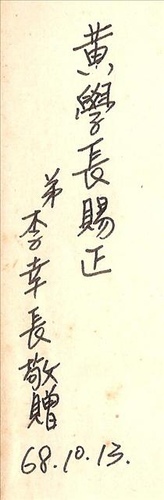 黃學長賜正
弟李幸長敬贈
68.10.13.